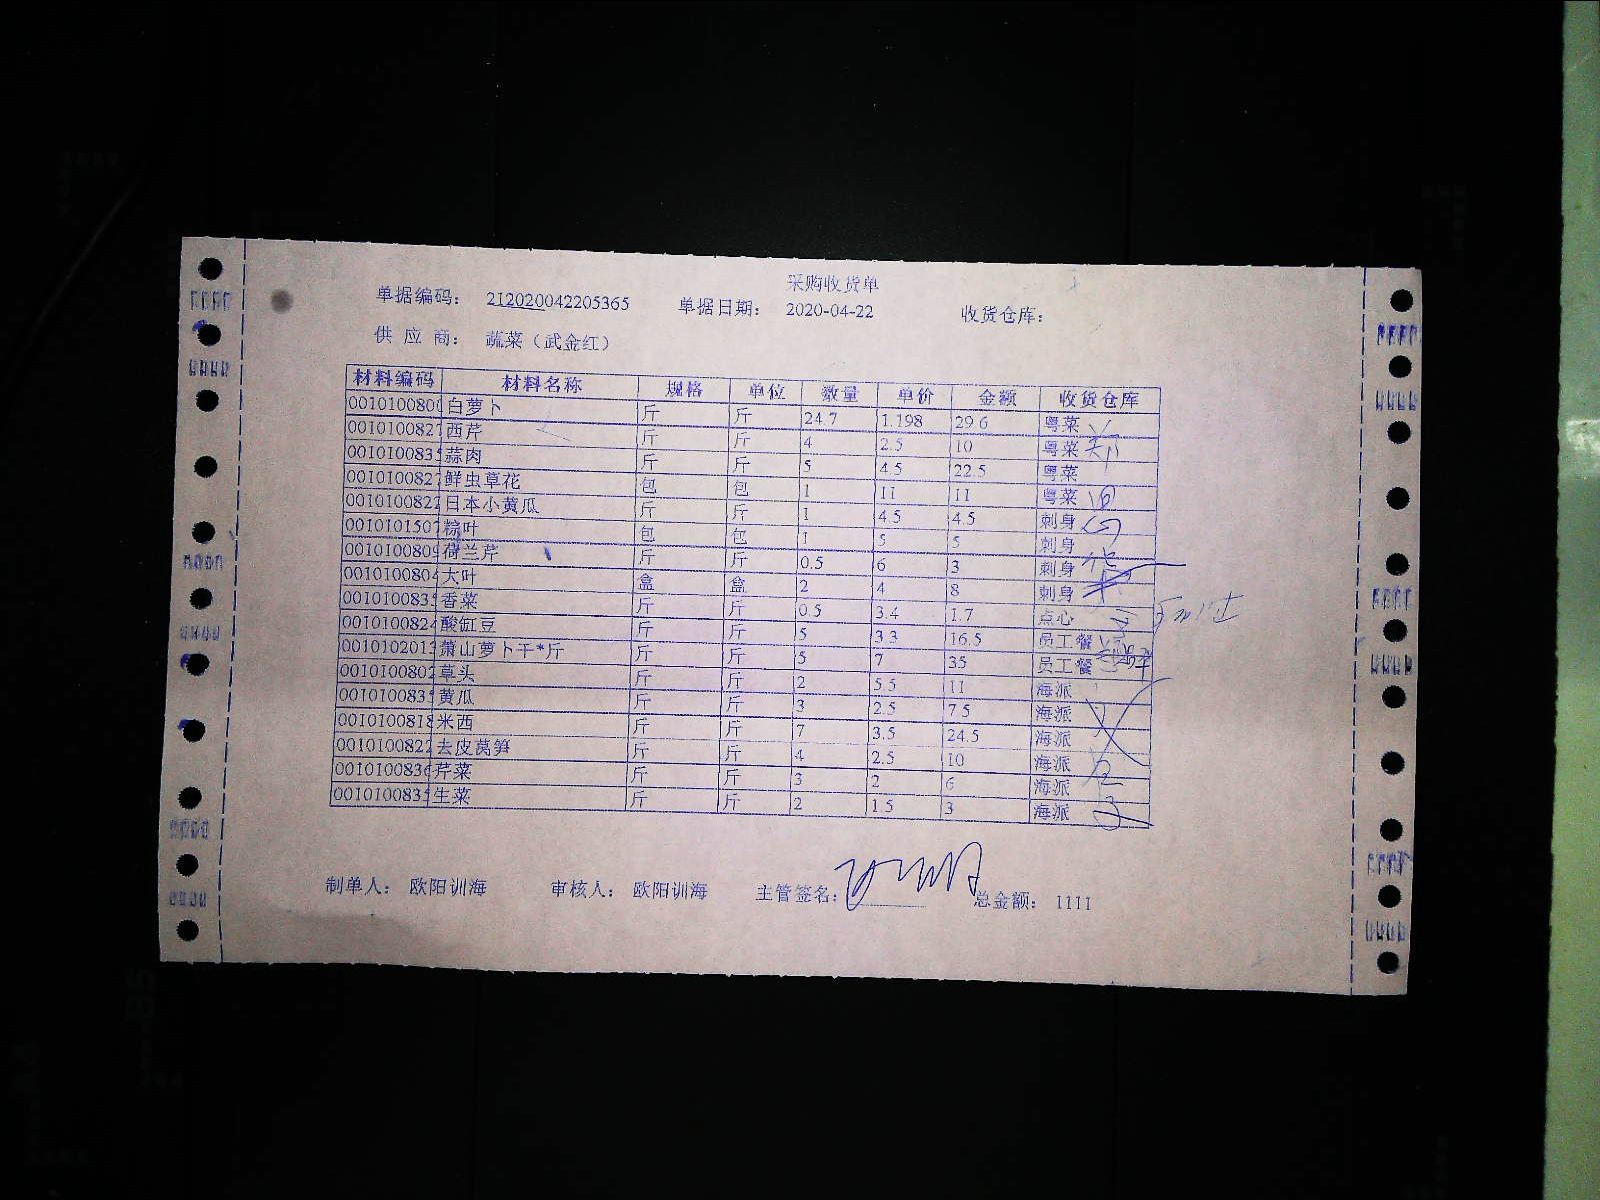 采购收货单
单据编码： 212020042205365 单据日期： 2020-04-22 收货仓库：
供 应 商： 蔬菜（武金红）
材料编码 材料名称 规格 单位 数量 单价 金额 收货仓库
0010100800 白萝卜 斤 斤 24.7 1.198 29.6 粤菜
0010100827 西芹 斤 斤 4 2.5 10 粤菜
0010100835 蒜肉 斤 斤 5 4.5 22.5 粤菜
0010100827 鲜虫草花 包 包 1 11 11 粤菜
0010100822 日本小黄瓜 斤 斤 1 4.5 4.5 刺身
0010101507 粽叶 包 包 1 5 5 刺身
0010100809 荷兰芹 斤 斤 0.5 6 3 刺身
0010100804 大叶 盒 盒 2 4 8 刺身
0010100835 香菜 斤 斤 0.5 3.4 1.7 点心
0010100824 酸缸豆 斤 斤 5 3.3 16.5 员工餐
0010102013 萧山萝卜干*斤 斤 斤 5 7 35 员工餐
0010100802 草头 斤 斤 2 5.5 11 海派
0010100835 黄瓜 斤 斤 3 2.5 7.5 海派
0010100818 米西 斤 斤 7 3.5 24.5 海派
0010100822 去皮莴笋 斤 斤 4 2.5 10 海派
0010100836 芹菜 斤 斤 3 2 6 海派
0010100835 生菜 斤 斤 2 1.5 3 海派
制单人： 欧阳训海 审核人： 欧阳训海 主管签名： 总金额： 1111